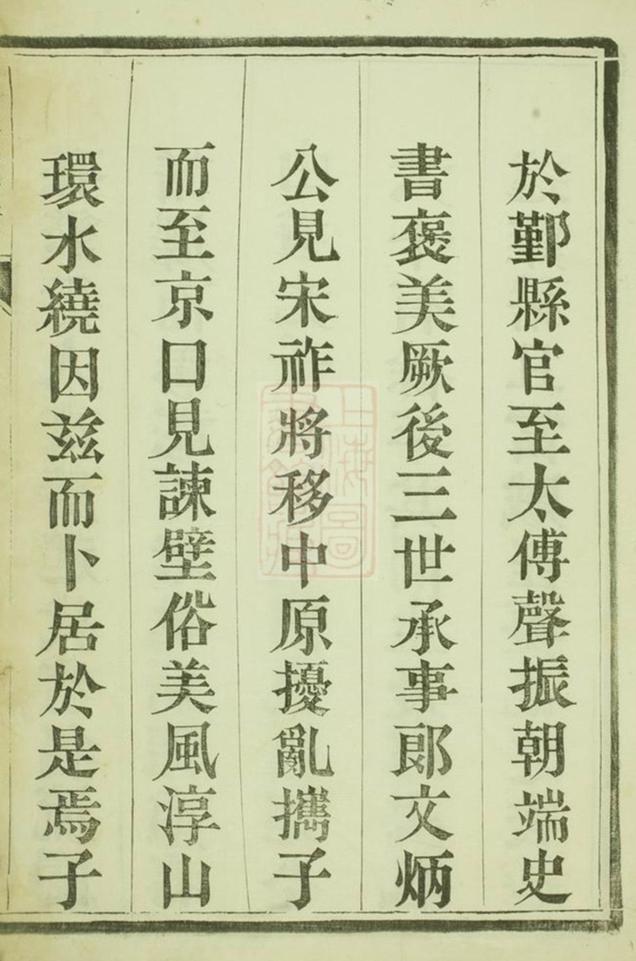 於鄞縣官至太傅聲振朝端史
書褒美厥後三世承事郎文炳
公見宋祚將移中原擾亂攜子
而至京口見諫壁俗美風淳山
環水繞因茲而卜居於是焉子